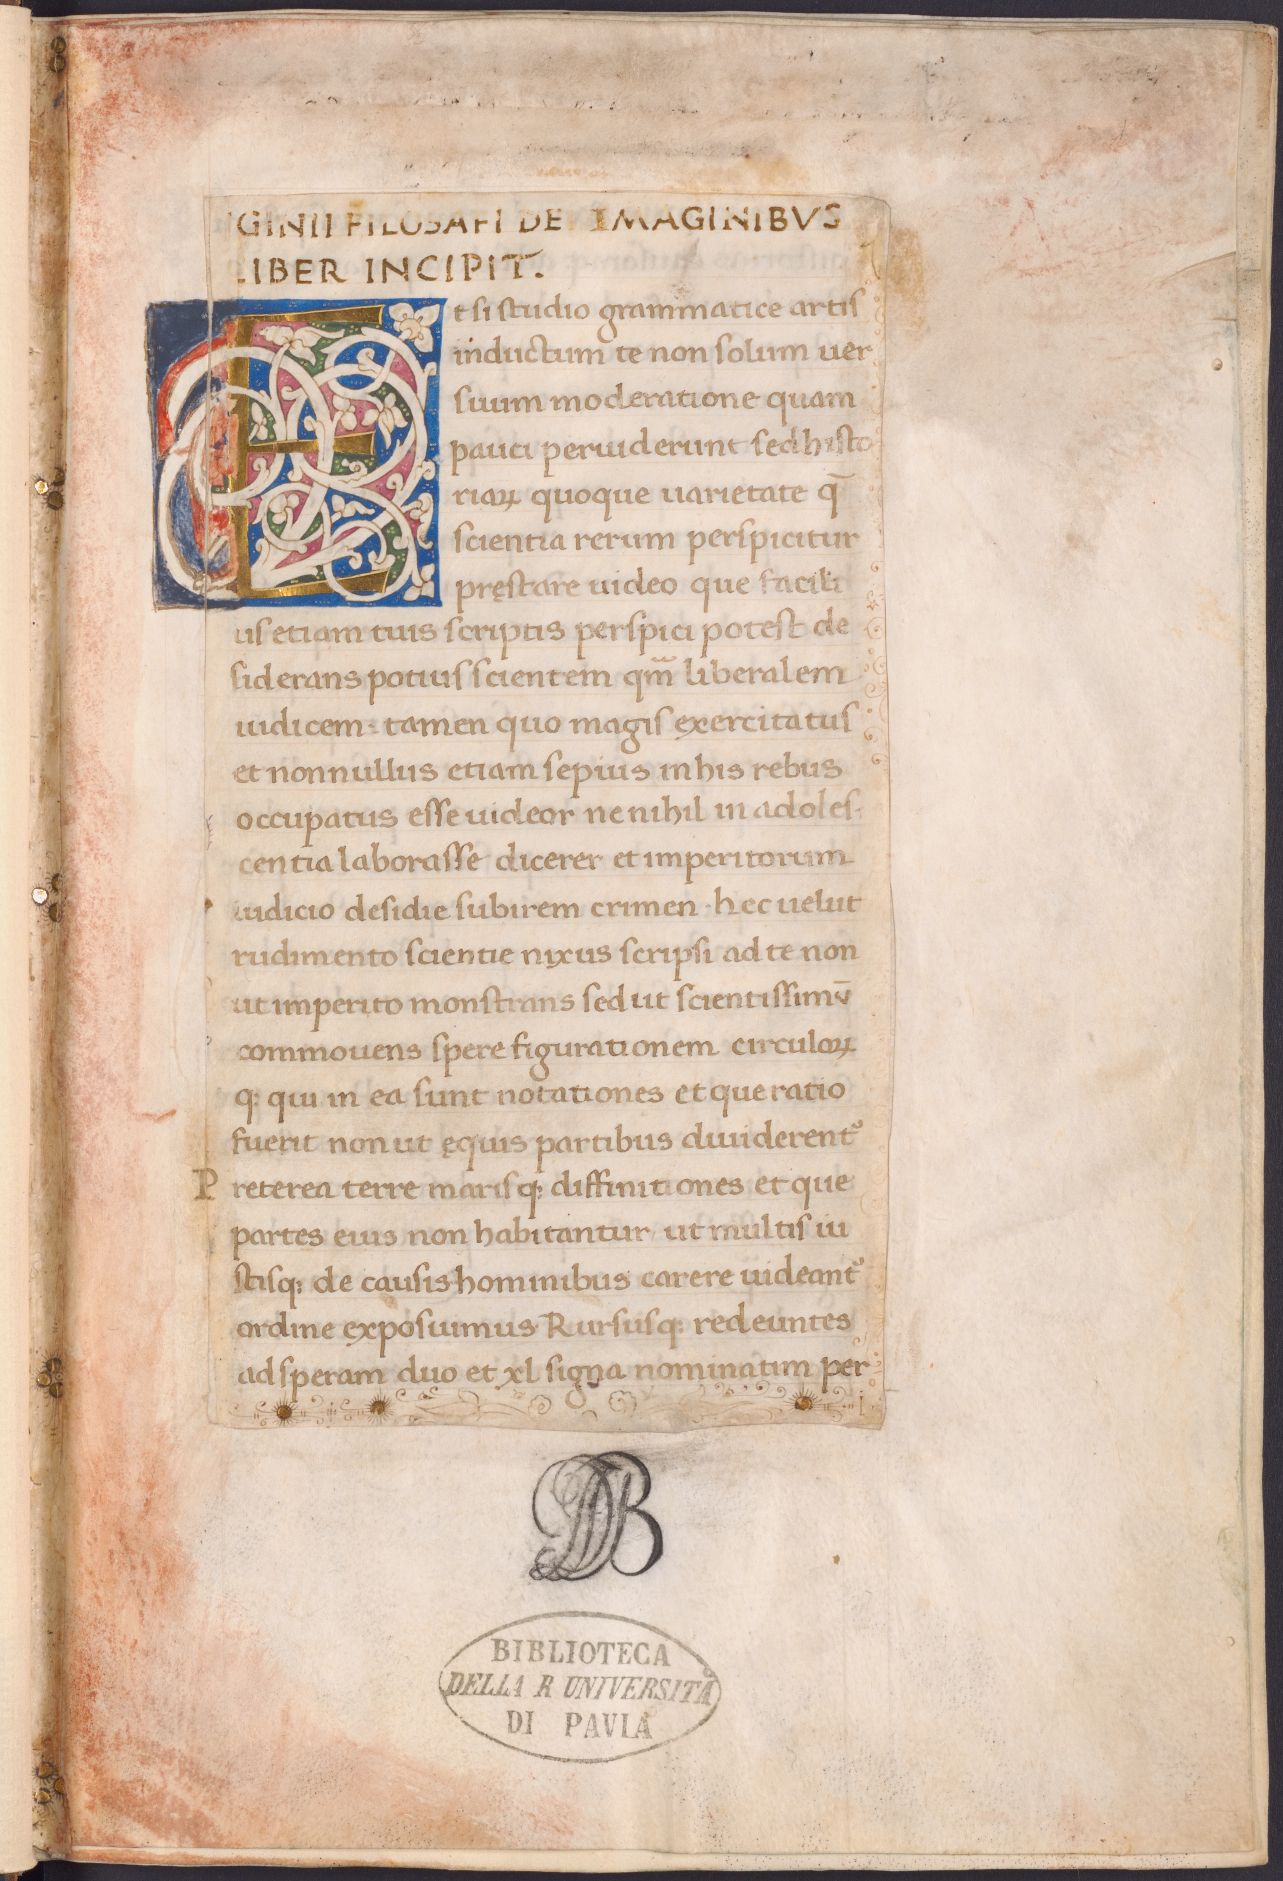 IGINII FILOSAFI DE IMAGINIBVS
LIBER INCIPIT.
Et si studio grammatice artis
inductum te non solum uer
suum moderatione quam
pauci peruiderunt sed histo
riaꝝ quoque uarietate q̄
scientia rerum perspicitur
pręstare uideo que facili
us etiam tuis scriptis perspici potest de
siderans potius scientem qm̄ liberalem
iudicem: tamen quo magis exercitatus
et nonnullus etiam sepius in his rebus
occupatus esse uideor ne nihil in adoles-
centia laborasse dicerer et imperitorum
iudicio desidie subirem crimen · hec uelut
rudimento scientie nixus scripsi ad te non
ut imperito monstrans sed ut scientissimū
commouens spere figurationem circuloꝝ
q: qui in ea sunt notationes et que ratio
fuerit non ut ęquis partibus diuiderent᾽
Preterea terre maris q: diffinitiones et que
partes eius non habitantur ut multis iu
stisq: de causis hominibus carere uideant᾽
ordine exposuimus Rursusq: redeuntes
ad speram duo et xl signa nominatim per
DB
BIBLIOTECA
DELLA R UNIVERSITÀ
DI PAVIA